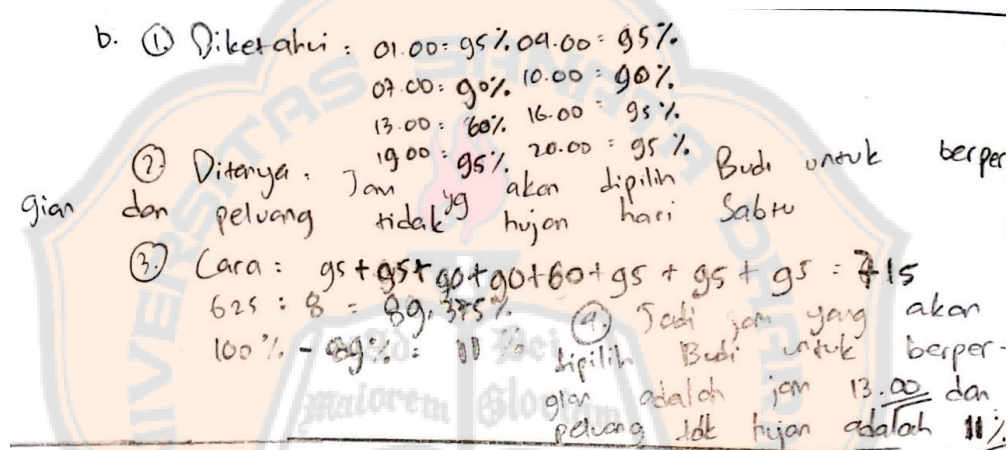 b. ① Diketahui : 01.00 : 95% 04.00 : 95%
07.00 : 90% 10.00 : 90%
13.00 : 60% 16.00 : 95%
19.00 : 95% 20.00 : 95%
② Ditanya : Jam yg akan dipilih Budi untuk berper
gian dan peluang tidak hujan hari Sabtu
③ Cara : 95 + 95 + 90 + 90 + 60 + 95 + 95 + 95 = 715
625 : 8 = 89,375%
100% - 89% = 11%
④ Jadi jam yang akan
dipilih Budi untuk berper-
gian adalah jam 13.00 dan
peluang tdk hujan adalah 11%